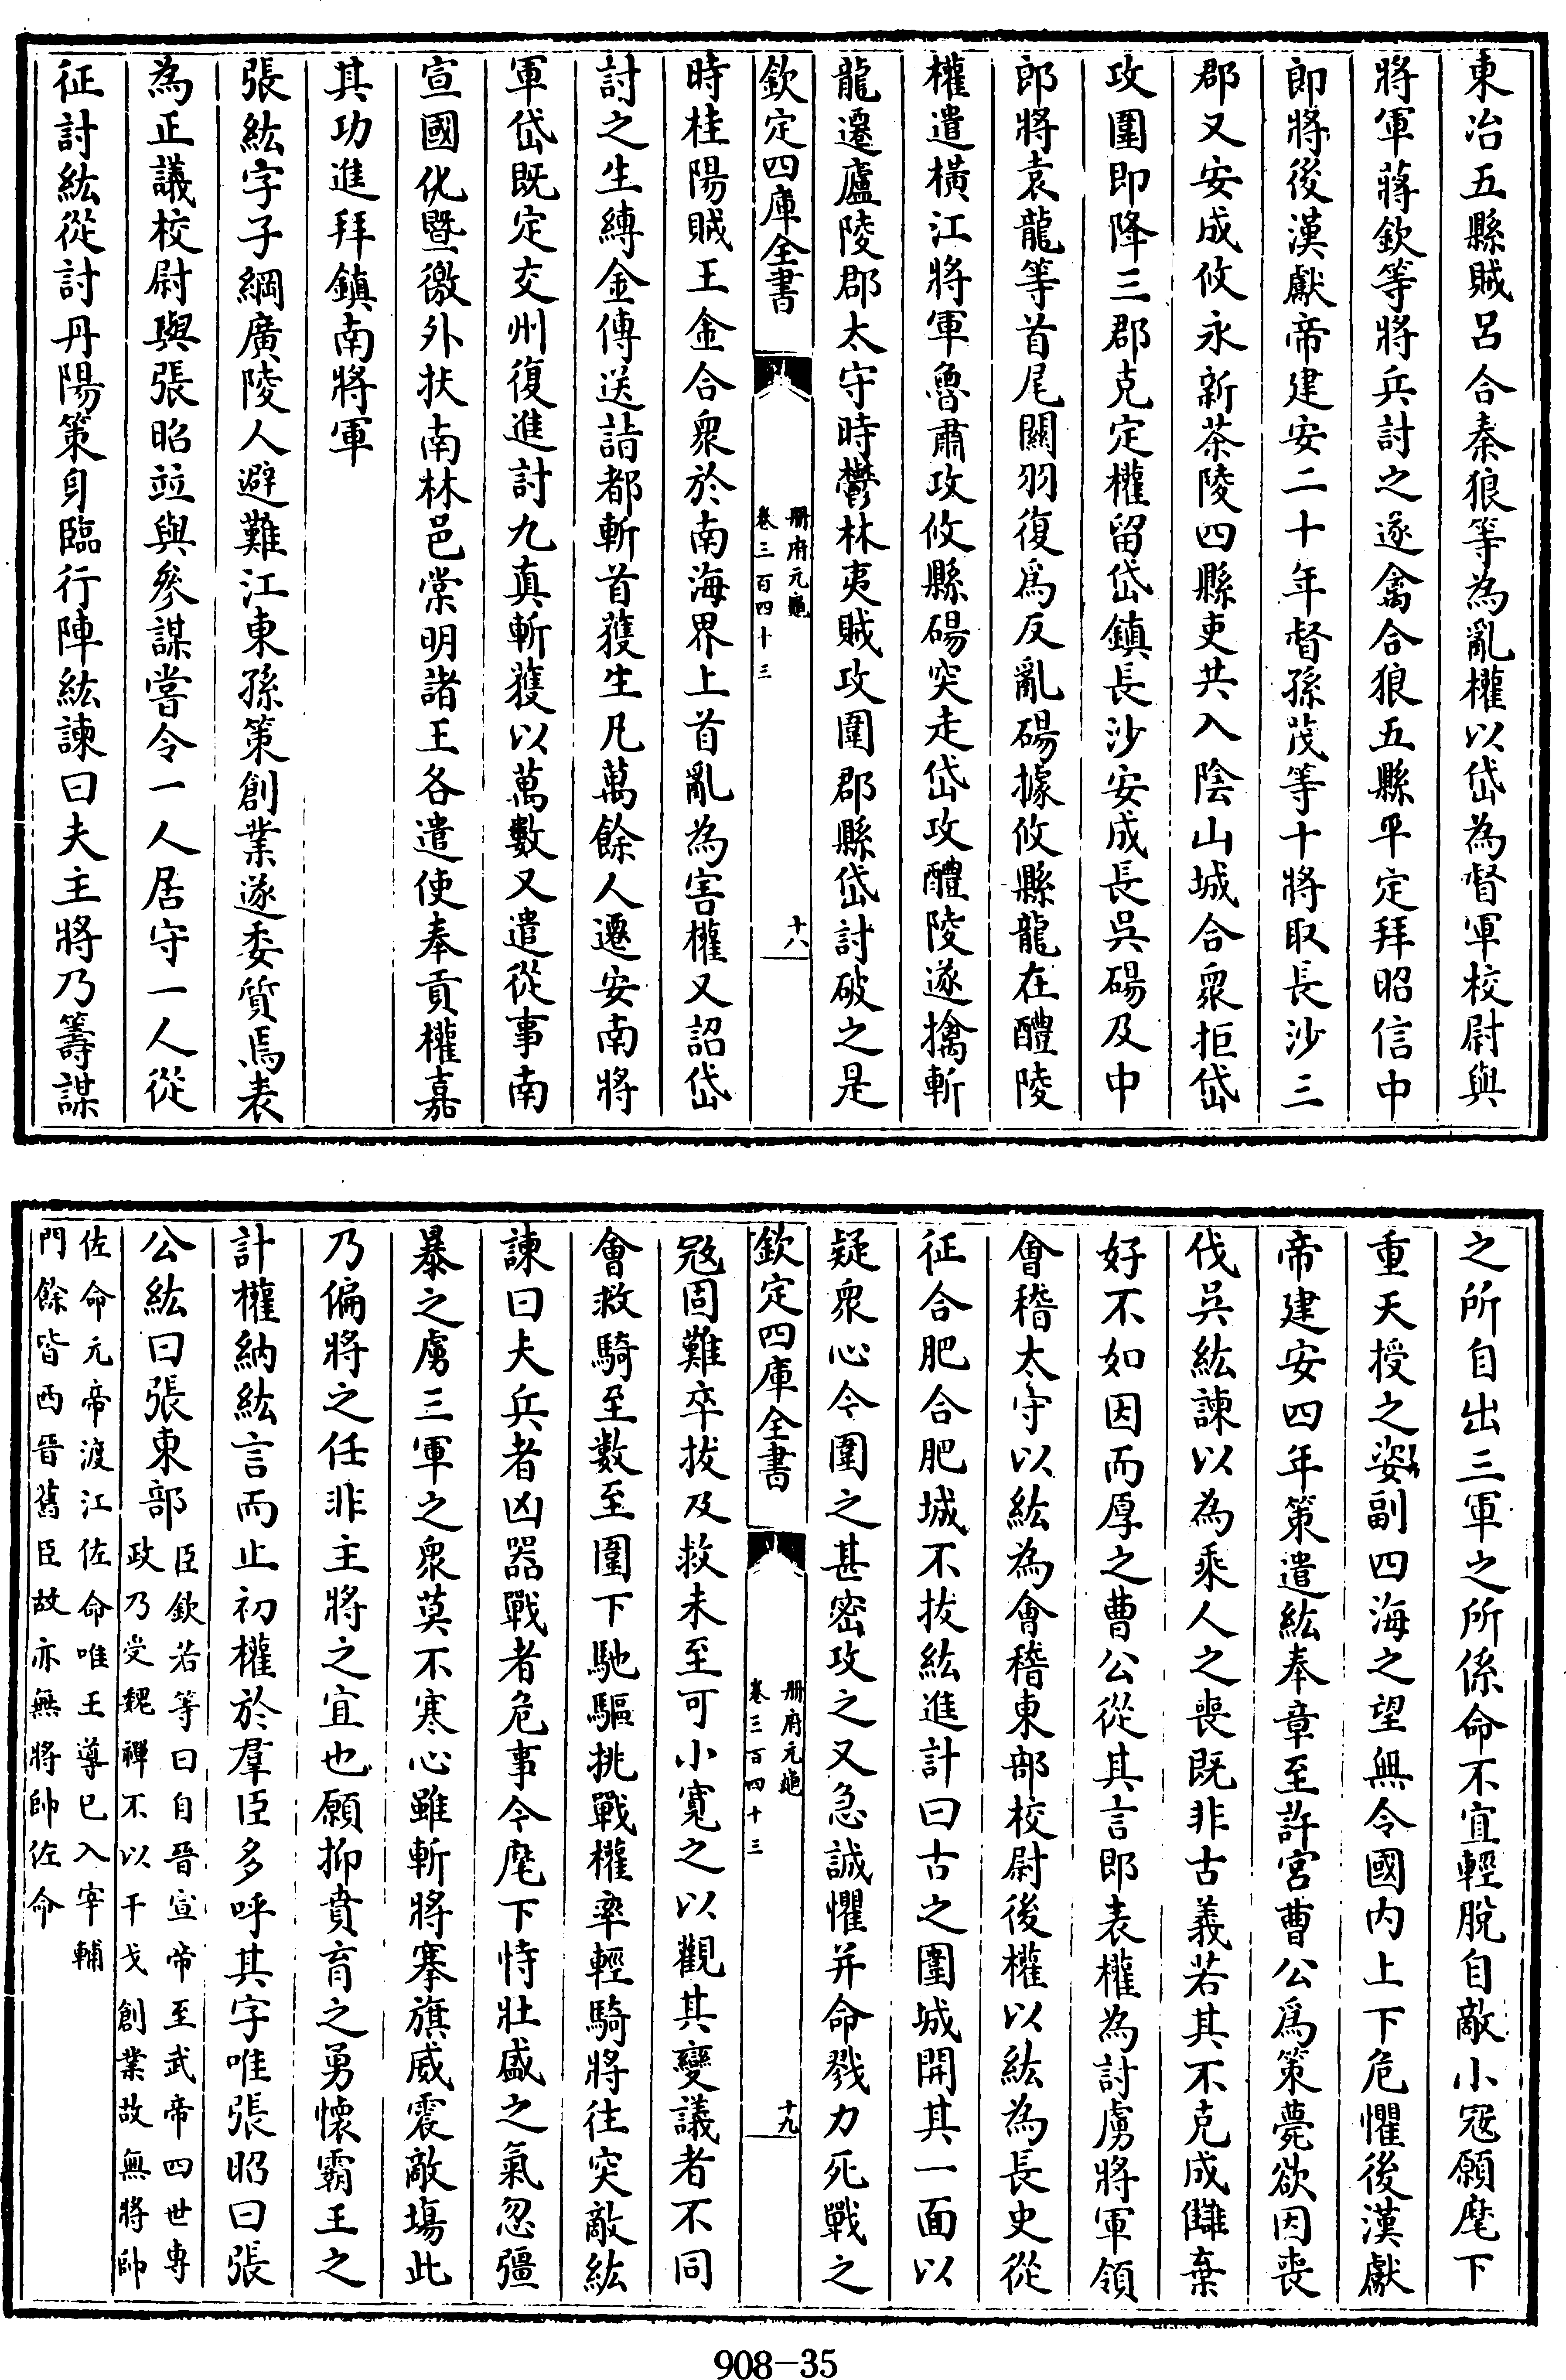 東冶五縣賊呂合秦狼等為亂權以岱為督軍校尉與
將軍蔣欽等將兵討之遂禽合狼五縣平定拜昭信中
郎將後漢獻帝建安二十年督孫茂等十將取長沙三
郡又安成攸永新茶陵四縣吏共入陰山城合衆拒岱
攻圍即降三郡克定權留岱鎮長沙安成長吳碭及中
郎將袁龍等首尾關羽復爲反亂碭據攸縣龍在醴陵
權遣橫江將軍魯肅攻攸縣碭突走岱攻醴陵遂擒斬
龍遷廬陵郡太守時鬱林夷賊攻圍郡縣岱討破之是
欽定四庫全書
册府元龜
卷三百四十三
十八
時桂陽賊王金合衆於南海界上首亂為害權又詔岱
討之生縛金傳送詣都斬首獲生凡萬餘人遷安南將
軍岱既定交州復進討九真斬獲以萬數又遣從事南
宣國化暨徼外扶南林邑棠明諸王各遣使奉貢權嘉
其功進拜鎮南將軍
張紘字子綱廣陵人避難江東孫策創業遂委質焉表
為正議校尉與張昭竝與參謀嘗令一人居守一人從
征討紘從討丹陽策身臨行陣紘諫曰夫主將乃籌謀
之所自出三軍之所係命不宜輕脫自敵小冦願麾下
重天授之姿副四海之望無令國內上下危懼後漢獻
帝建安四年策遣紘奉章至許宮曹公爲策薨欲因喪
伐吳紘諫以為乘人之喪既非古義若其不克成讎棄
好不如因而厚之曹公從其言即表權為討虜將軍領
會稽太守以紘為會稽東部校尉後權以紘為長史從
征合肥合肥城不拔紘進計曰古之圍城開其一面以
疑衆心今圍之甚密攻之又急誠懼并命戮力死戰之
欽定四庫全書
册府元龜
卷三百四十三
十九
冦固難卒拔及救未至可小寬之以觀其變議者不同
會救騎至數至圍下馳驅挑戰權率輕騎將往突敵紘
諫曰夫兵者凶噐戰者危事今麾下恃壯盛之氣忽彊
暴之虜三軍之衆莫不寒心雖斬將搴旗威震敵場此
乃偏將之任非主將之宜也願抑賁育之勇懷霸王之
計權納紘言而止初權於羣臣多呼其字唯張昭曰張
公紘曰張東部
臣欽若等曰自晉宣帝至武帝四世專
政乃受魏禪不以干戈創業故無將帥
佐命元帝渡江佐命唯王導已入宰輔
門餘皆西晉舊臣故亦無將帥佐命
908-35